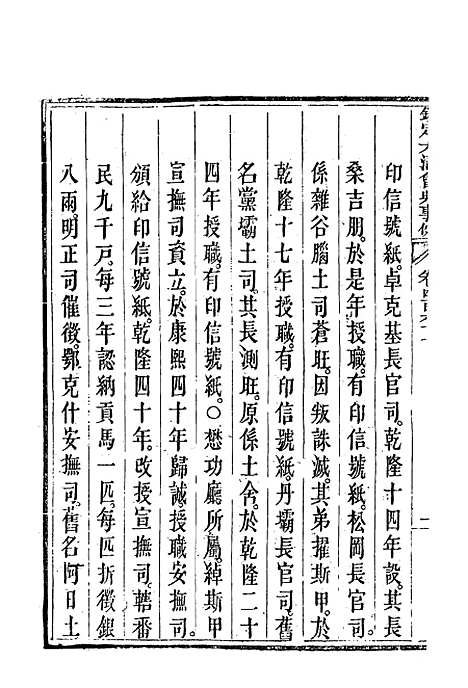 欽定大清會典事例
印信號紙。卓克基長官司。乾隆十四年設。其長
桑吉朋。於是年授職。有印信號紙。松岡長官司。
係雜谷腦土司蒼旺。因叛誅滅。其弟擢斯甲。於
乾隆十七年授職。有印信號紙。丹壩長官司。舊
名黨壩土司。其長測旺。原係土舍。於乾隆二十
四年授職。有印信號紙。○懋功廳所屬。綽斯甲
宣撫司資立。於康熙四十年歸誠授職安撫司。
頒給印信號紙。乾隆四十年。改授宣撫司。轄番
民九千戶。每三年認納貢馬一匹。每匹折徵銀
八兩。明正司催徵。鄂克什安撫司。舊名阿日土